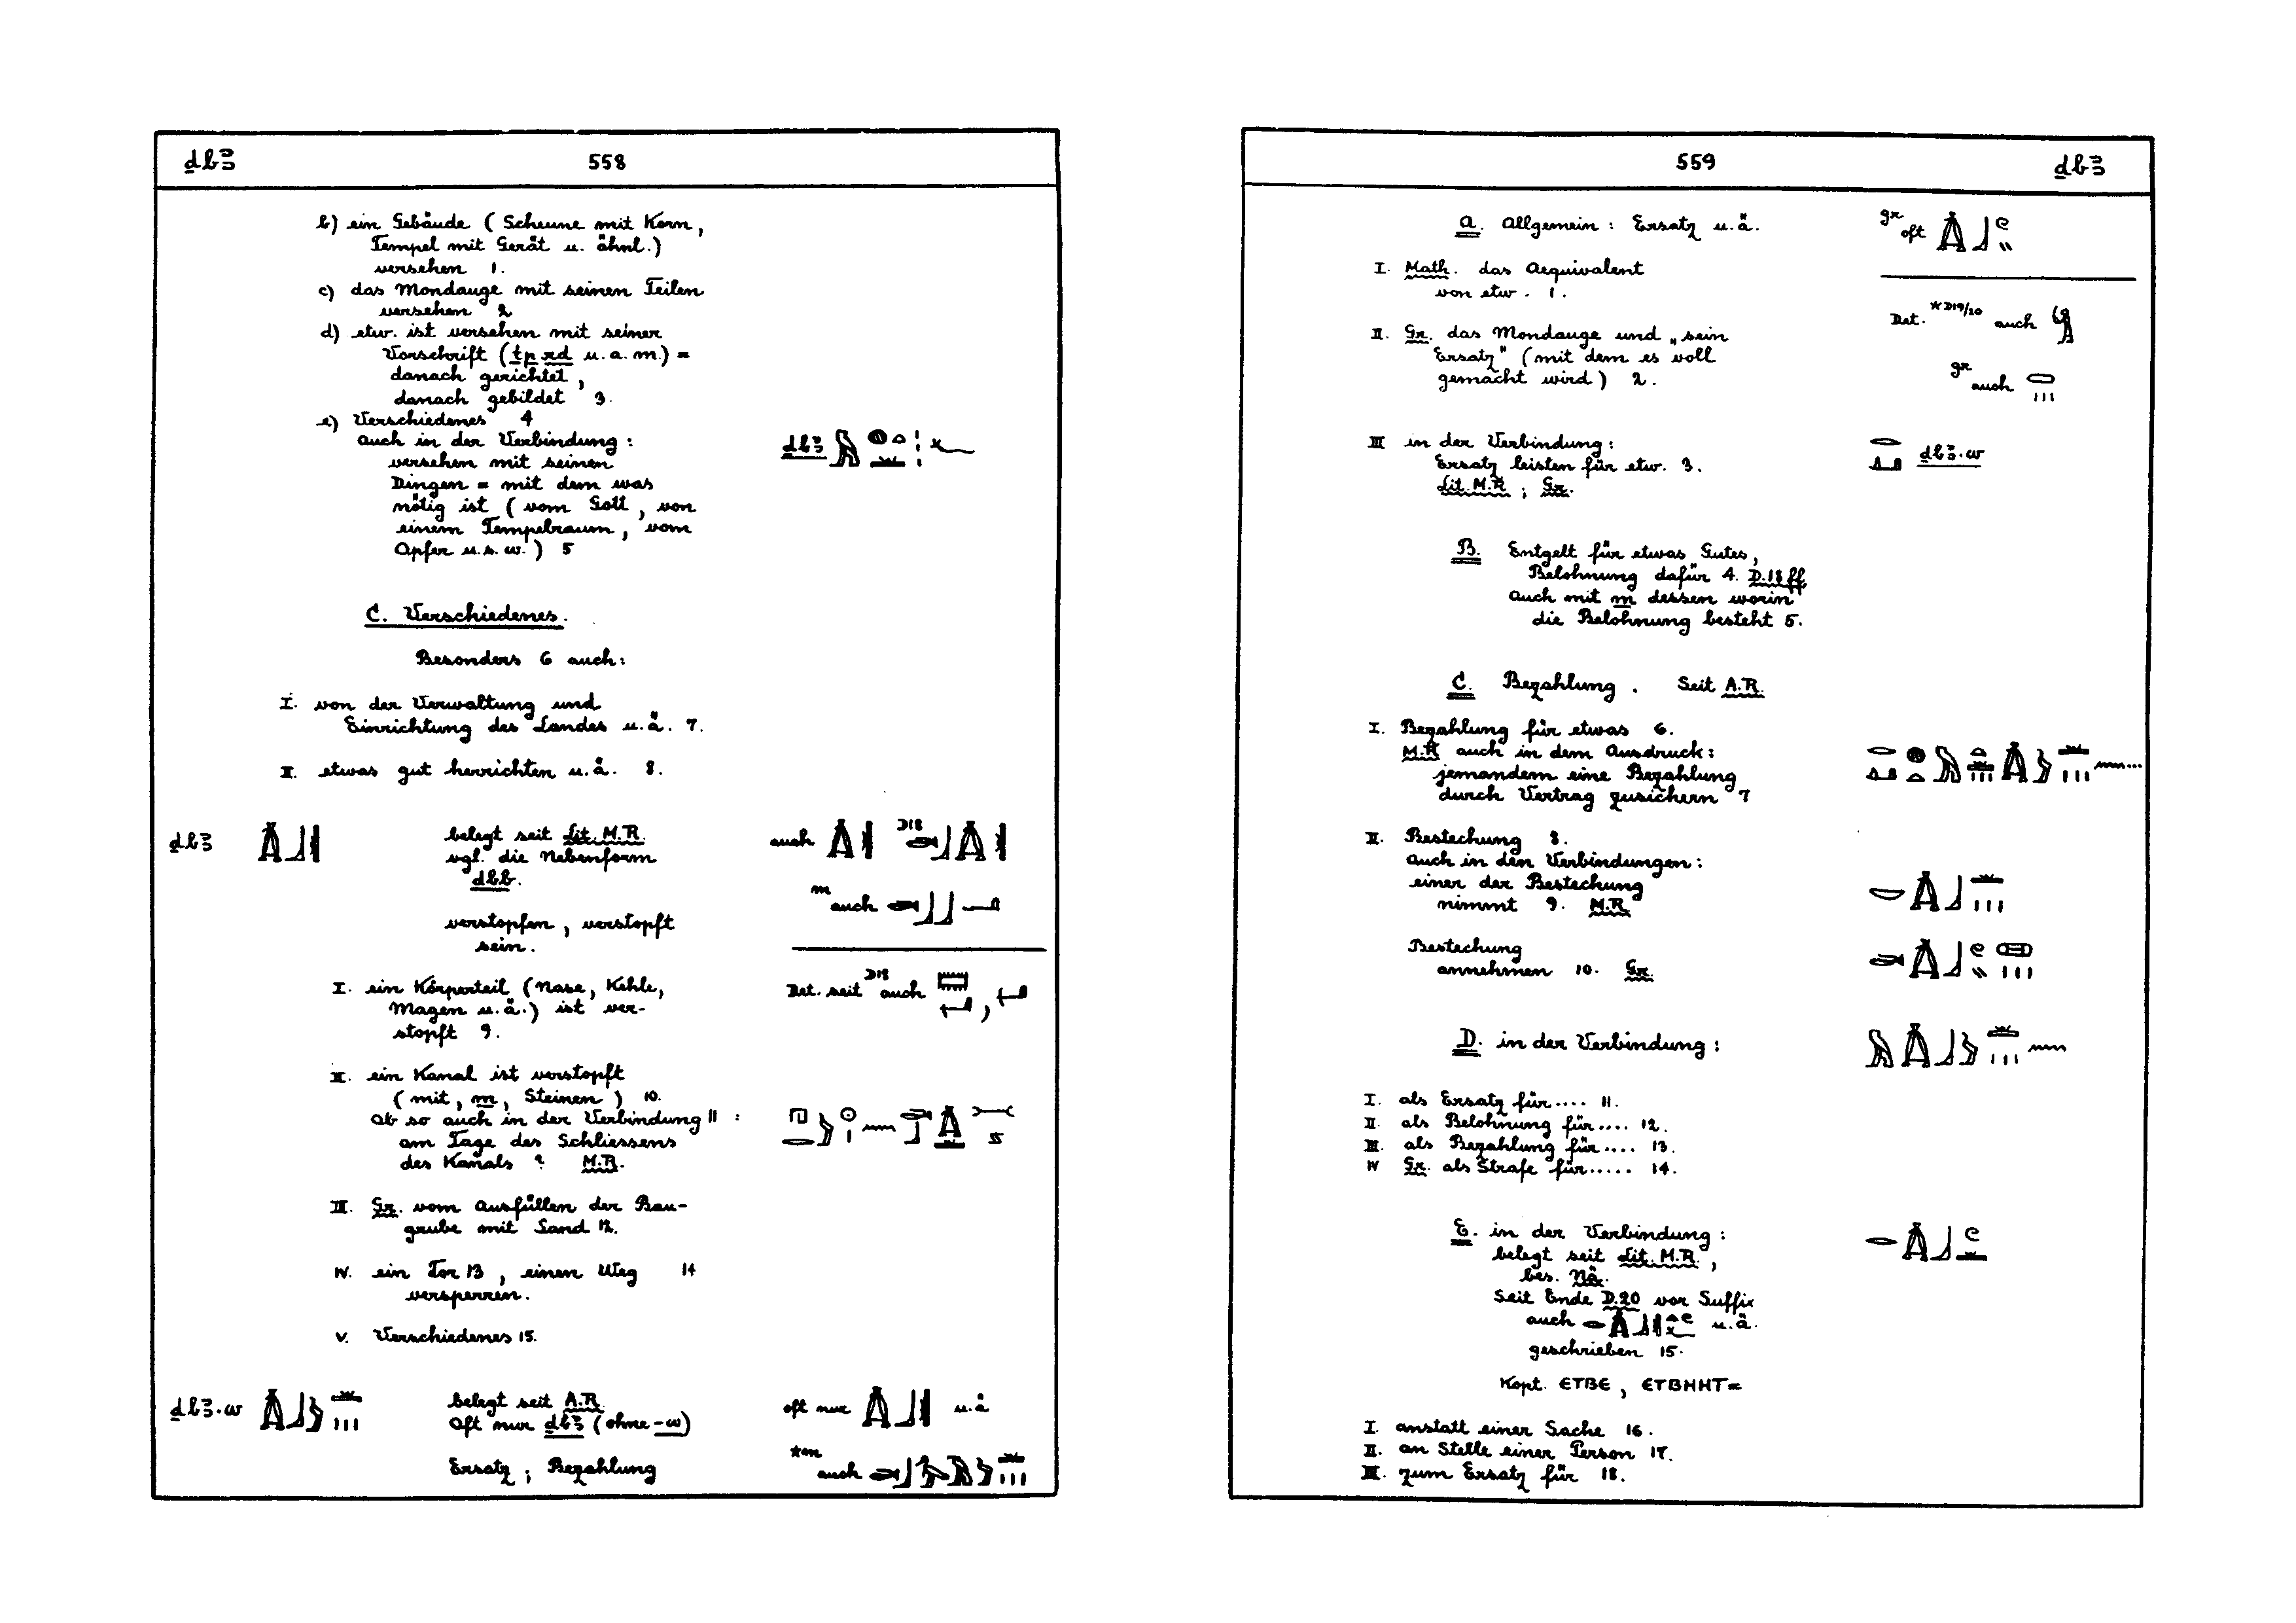 ḏbꜣ 558
b) ein Gebäude (Scheune mit Korn,
Tempel mit Gerät u. ähnl.)
versehen 1.
c) das Mondauge mit seinen Teilen
versehen 2
d) etw. ist versehen mit seiner
Vorschrift (tp rd u. a. m.) =
danach gerichtet,
danach gebildet 3.
e) Verschiedenes 4
auch in der Verbindung: ḏbꜣ
versehen mit seinen
Dingen = mit dem was
nötig ist (vom Gott, von
einem Tempelraum, vom
Opfer u.s.w.) 5
C. Verschiedenes.
Besonders 6 auch:
I. von der Verwaltung und
Einrichtung des Landes u.ä. 7.
II. etwas gut herrichten u.ä. 8.
ḏbꜣ belegt seit Lit. M.R. auch D18
vgl. die Nebenform
ḏbb. m auch
verstopfen, verstopft
sein.
I. ein Körperteil (Nase, Kehle, Det. seit D18 auch
Magen u.ä.) ist ver-
stopft 9.
II. ein Kanal ist verstopft
(mit, m, Steinen) 10.
Ob so auch in der Verbindung 11:
am Tage des Schliessens
des Kanals? M.R.
III. Gr. vom Ausfüllen der Bau-
grube mit Sand 12.
IV. ein Tor 13, einen Weg 14
versperren.
V. Verschiedenes 15.
ḏbꜣ.w belegt seit A.R. oft nur u.ä
Oft nur ḏbꜣ (ohne -w)
Ersatz; Bezahlung *m auch
559 ḏbꜣ
A. Allgemein: Ersatz u.ä. gr oft
I. Math. das Aequivalent
von etw. 1. Det. *D19/20 auch
II. Gr. das Mondauge und „sein
Ersatz" (mit dem es voll
gemacht wird) 2. gr auch
III in der Verbindung: ḏbꜣ.w
Ersatz leisten für etw. 3.
Lit. M.R; Gr.
B. Entgelt für etwas Gutes,
Belohnung dafür 4. D.18 ff
auch mit m dessen worin
die Belohnung besteht 5.
C. Bezahlung. Seit A.R.
I. Bezahlung für etwas 6.
M.R auch in dem Ausdruck:
jemandem eine Bezahlung
durch Vertrag zusichern 7
II. Bestechung 8.
auch in den Verbindungen:
einer der Bestechung
nimmt 9. M.R
Bestechung
annehmen 10. Gr.
D. in der Verbindung:
I. als Ersatz für.... 11.
II. als Belohnung für.... 12.
III. als Bezahlung für.... 13.
IV Gr. als Strafe für..... 14.
E. in der Verbindung:
belegt seit Lit. M.R.,
bes. Nä.
Seit Ende D.20 vor Suffix
auch u.ä.
geschrieben 15.
Kopt. ⲉⲧⲃⲉ, ⲉⲧⲃⲏⲏⲧ=
I. anstatt einer Sache 16.
II. an Stelle einer Person 17.
III. zum Ersatz für 18.